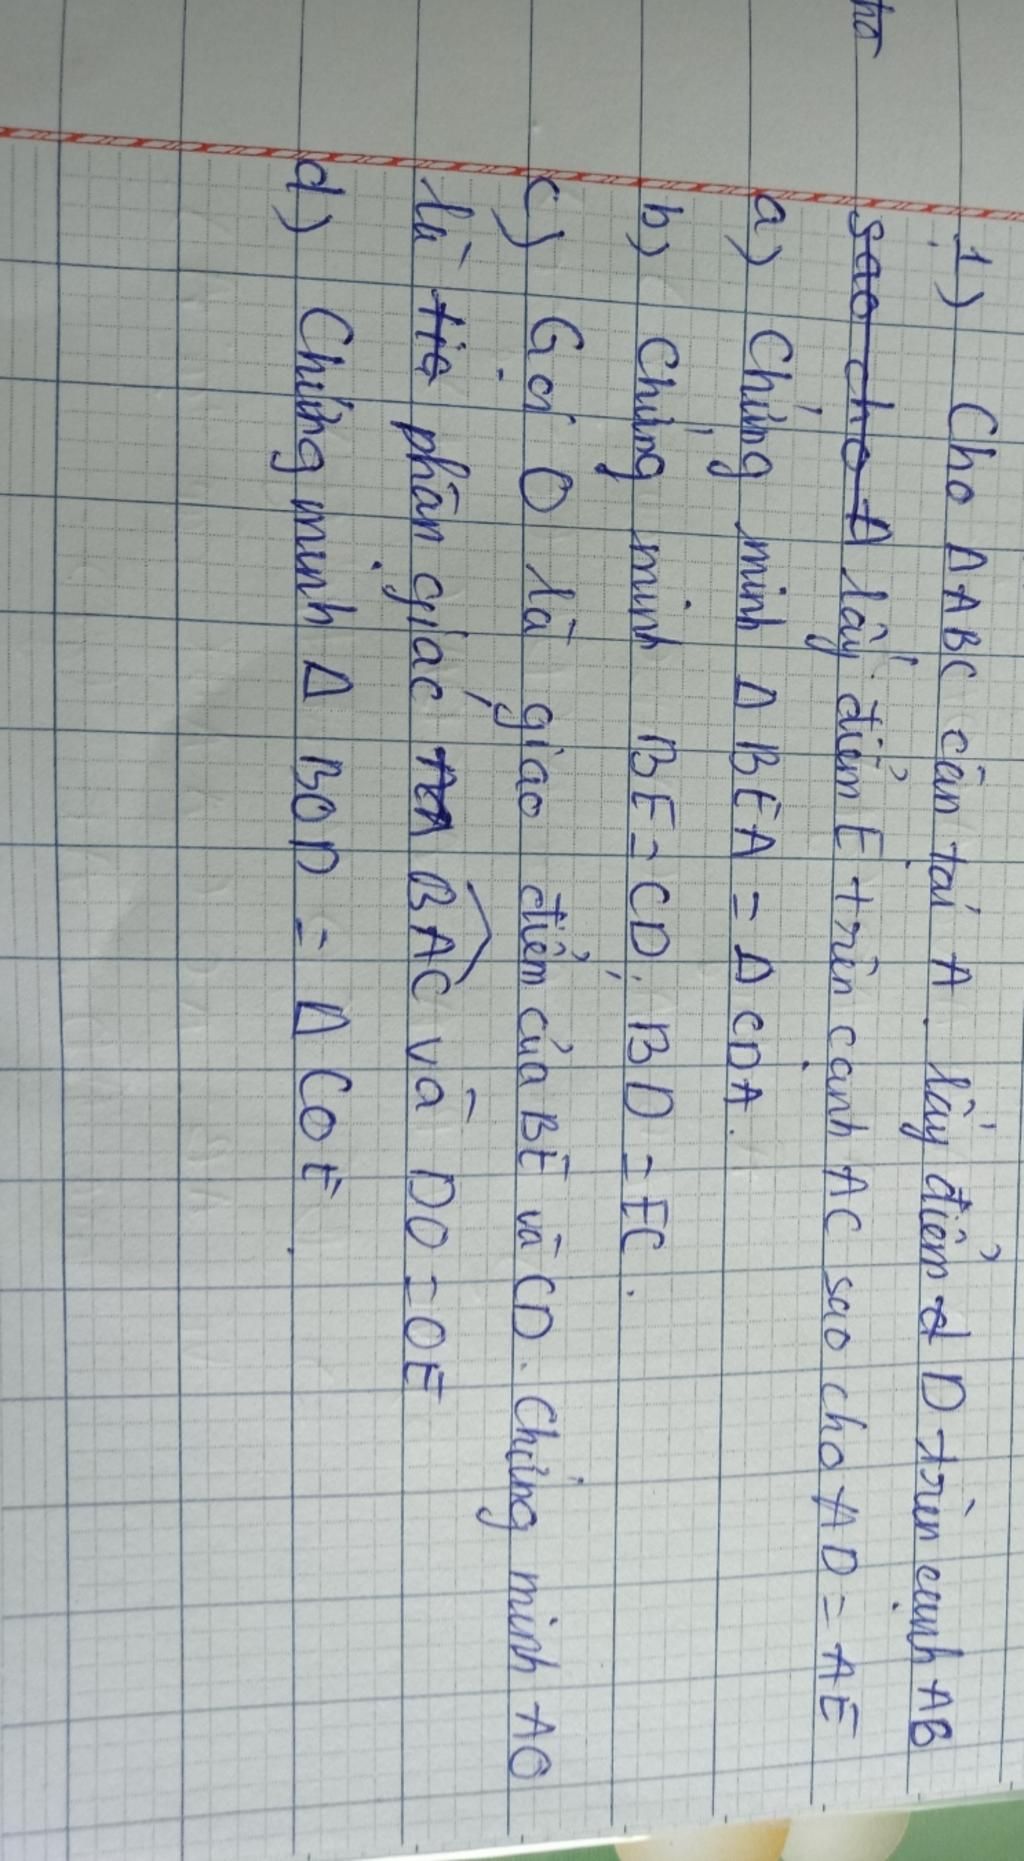 1) Cho Δ ABC cân tại A. lấy điểm D trên cạnh AB
sao cho A lấy điểm E trên cạnh AC sao cho AD = AE
a) Chứng minh Δ BEA = Δ CDA.
b) Chứng minh BE = CD; BD = EC.
c) Gọi O là giao điểm của BE và CD. Chứng minh AO
là tia phân giác BAC và DO = OE
d) Chứng minh Δ BOD = Δ COE.